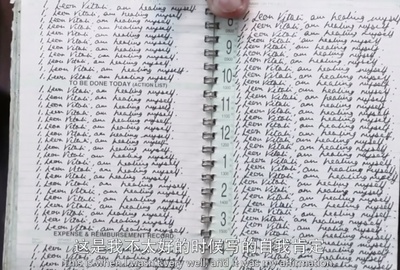 I, Leon Vitali, am healing myself.
I, Leon Vitali, am healing myself.
I, Leon Vitali, am healing myself.
I, Leon Vitali, am healing myself.
I, Leon Vitali, am healing myself.
I, Leon Vitali, am healing myself.
I, Leon Vitali, am healing myself.
TO BE DONE TODAY (ACTION LIST)
I, Leon Vitali, am healing myself.
I, Leon Vitali, am healing myself.
I, Leon Vitali, am healing myself.
I, Leon Vitali, am healing myself.
I, Leon Vitali, am healing myself.
I, Leon Vitali, am healing myself.
I, Leon Vitali, am healing myself.
I, Leon Vitali, am healing myself.
I, Leon Vitali, am healing myself.
I, Leon Vitali, am healing myself.
I, Leon Vitali, am healing myself.
I, Leon Vitali, am healing myself.
I, Leon Vitali, am healing myself.
EXPENSE & REIMBURSEMENT RECORD
8
9
10
11
12
1
2
3
I, Leon Vitali, am healing myself.
I, Leon Vitali, am healing myself.
I, Leon Vitali, am healing myself.
I, Leon Vitali, am healing myself.
I, Leon Vitali, am healing myself.
I, Leon Vitali, am healing myself.
I, Leon Vitali, am healing myself.
I, Leon Vitali, am healing myself.
I, Leon Vitali, am healing myself.
I, Leon Vitali, am healing myself.
I, Leon Vitali, am healing myself.
I, Leon Vitali, am healing myself.
I, Leon Vitali, am healing myself.
I, Leon Vitali, am healing myself.
I, Leon Vitali, am healing myself.
I, Leon Vitali, am healing myself.
I, Leon Vitali, am healing myself.
I, Leon Vitali, am healing myself.
I, Leon Vitali, am healing myself.
I, Leon Vitali, am healing myself.
这是我不太好的时候写的自我肯定
This is when I wasn't very well and it was my affirmation.